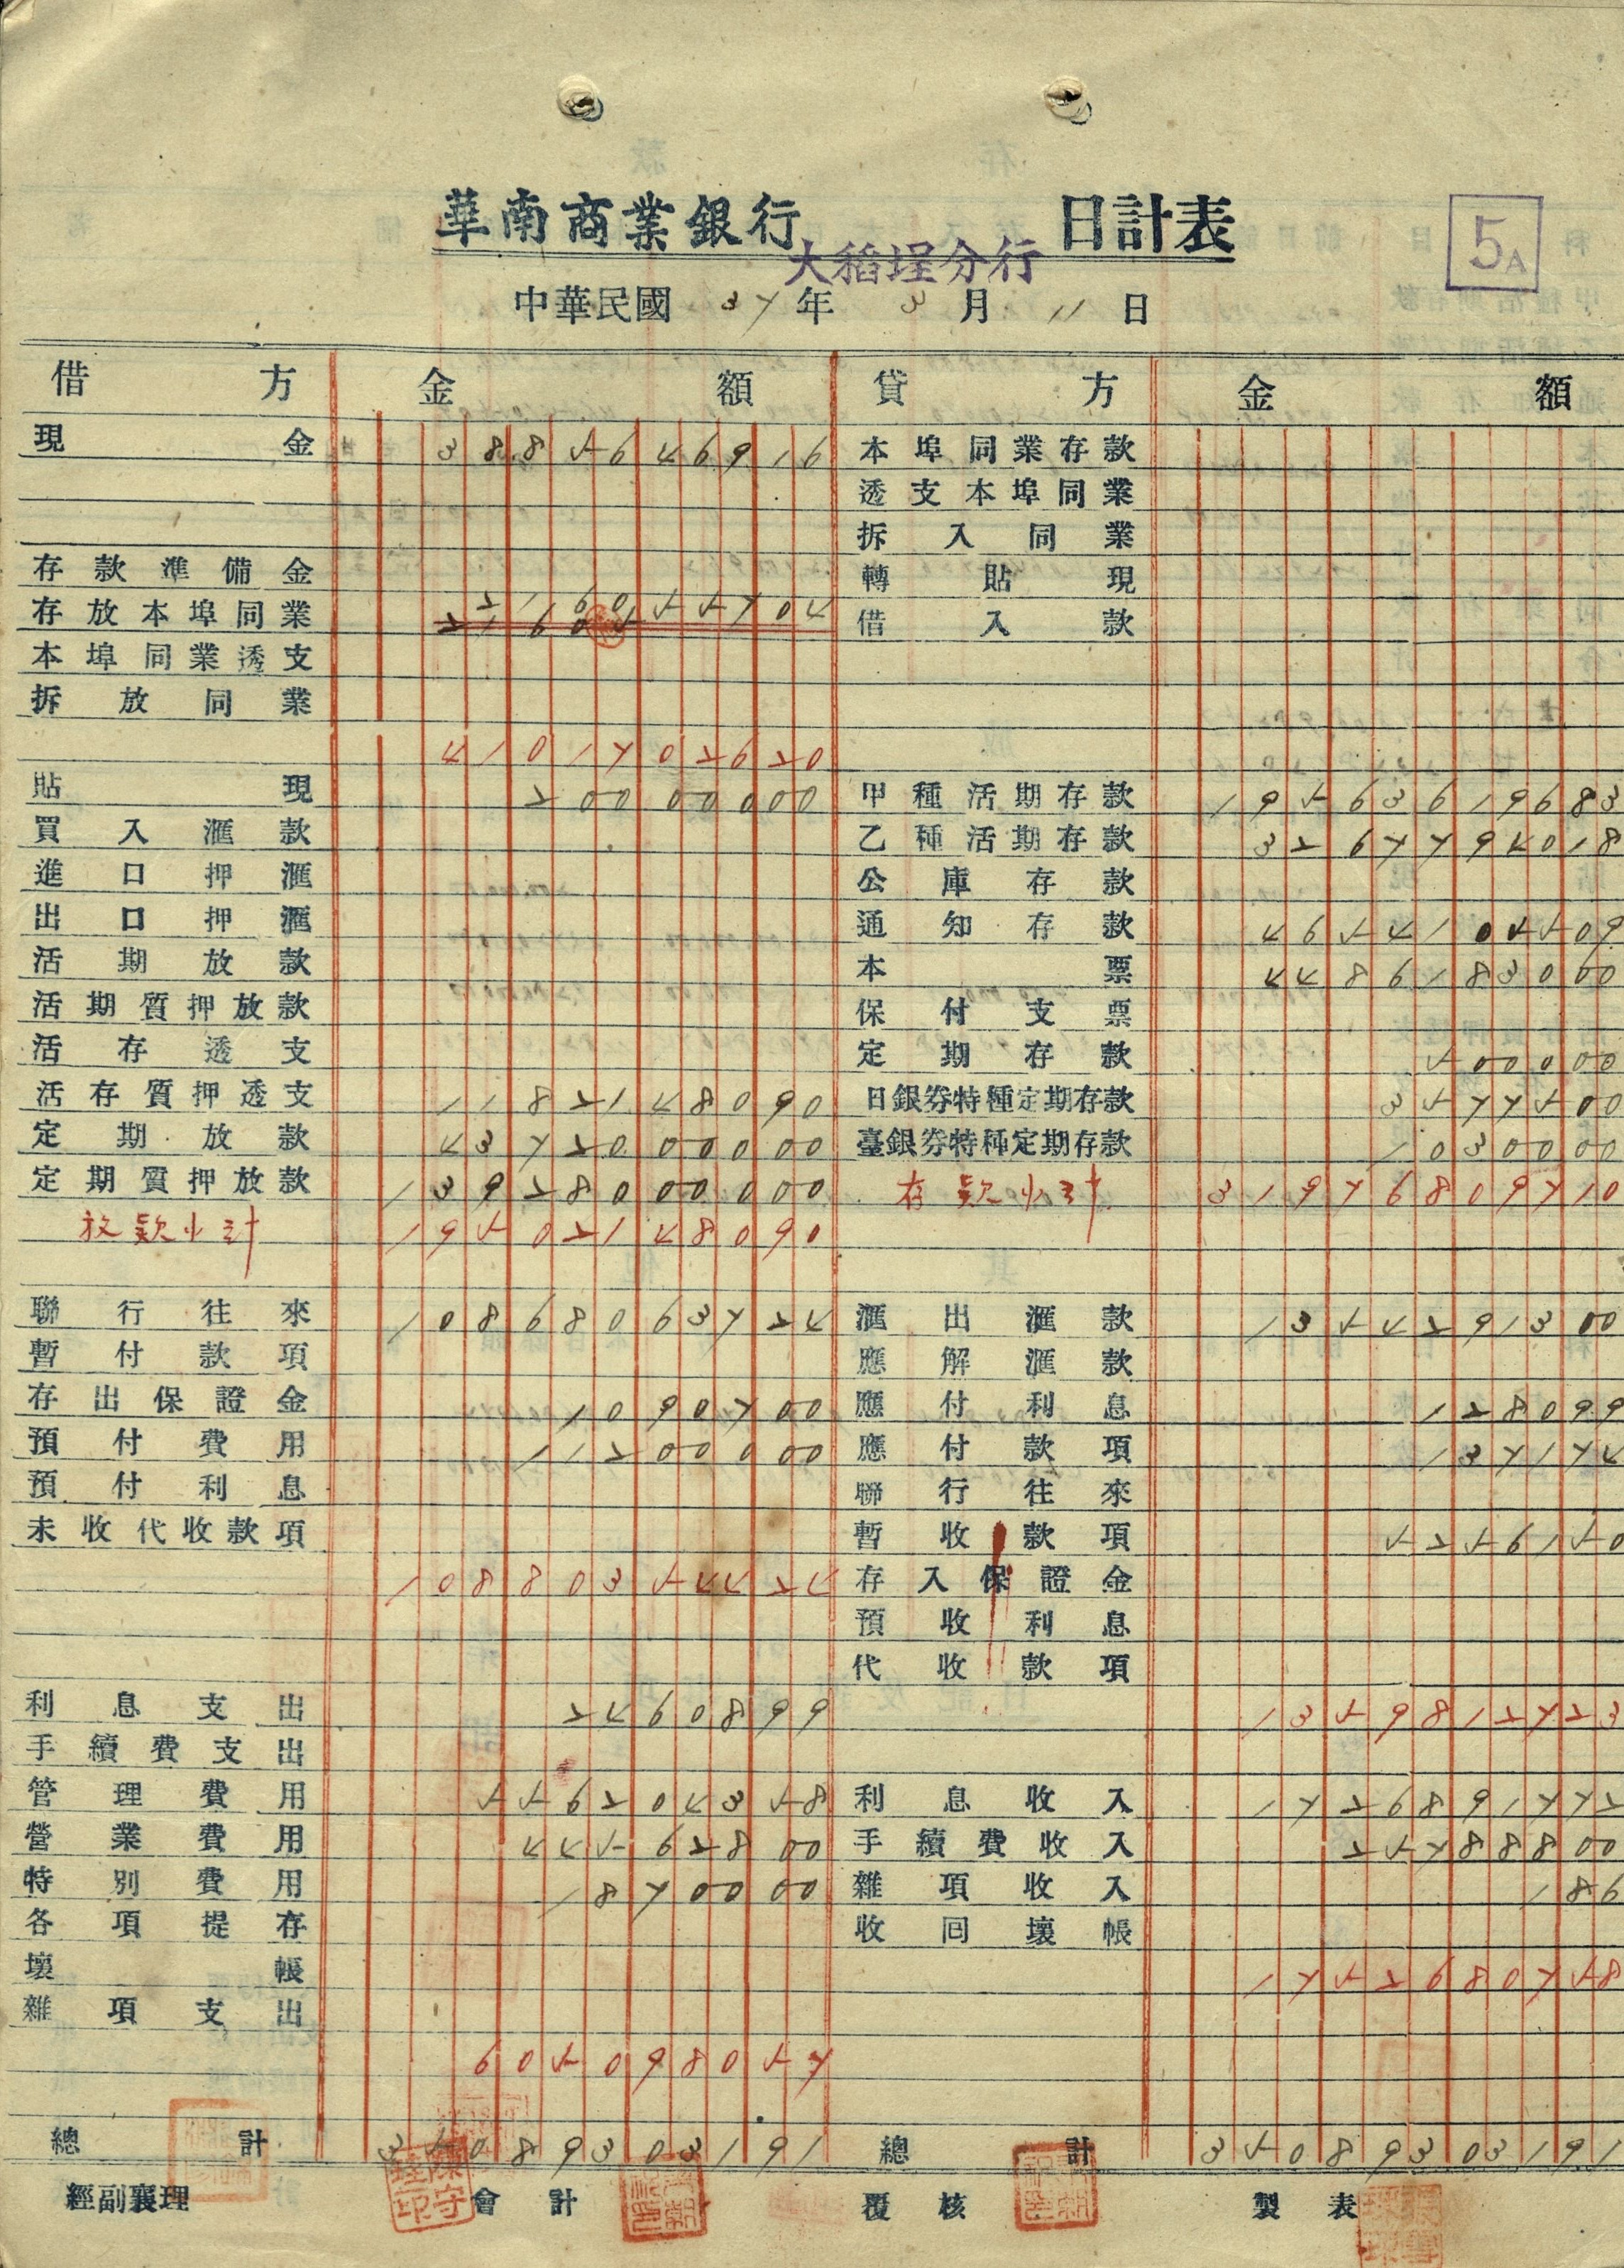 華南商業銀行 大稻埕分行 日計表
5A
中華民國 37 年 3 月 11 日
借方 金額 貸方 金額
現金 3885646916 本埠同業存款
透支本埠同業
拆入同業
存款準備金 轉貼現
存放本埠同業 216055704 借入款
本埠同業透支
拆放同業
4101702620
貼現 20000000 甲種活期存款 19563619683
買入滙款 乙種活期存款 3267794018
進口押滙 公庫存款
出口押滙 通知存款 4654105509
活期放款 本票 4486183000
活期質押放款 保付支票
活存透支 定期存款 500000
活存質押透支 1182148090 日銀券特種定期存款 3577500
定期放款 4372000000 臺銀券特種定期存款 1030000
定期質押放款 13928000000 存款小計 31976809710
放款小計 19502148090
聯行往來 10868063724 滙出滙款 1354291300
暫付款項 應解滙款
存出保證金 1090700 應付利息 128099
預付費用 11200000 應付款項 137174
預付利息 聯行往來
未收代收款項 暫收款項 5256150
10880354424 存入保證金
預收利息
代收款項
利息支出 2460899 1359812723
手續費支出
管理費用 556204358 利息收入 1726891772
營業費用 44562800 手續費收入 25788800
特別費用 1870000 雜項收入 186
各項提存 收回壞帳
壞帳 1752680758
雜項支出
605098057
總計 35089303191 總計 35089303191
經副襄理 會計 覆核 製表